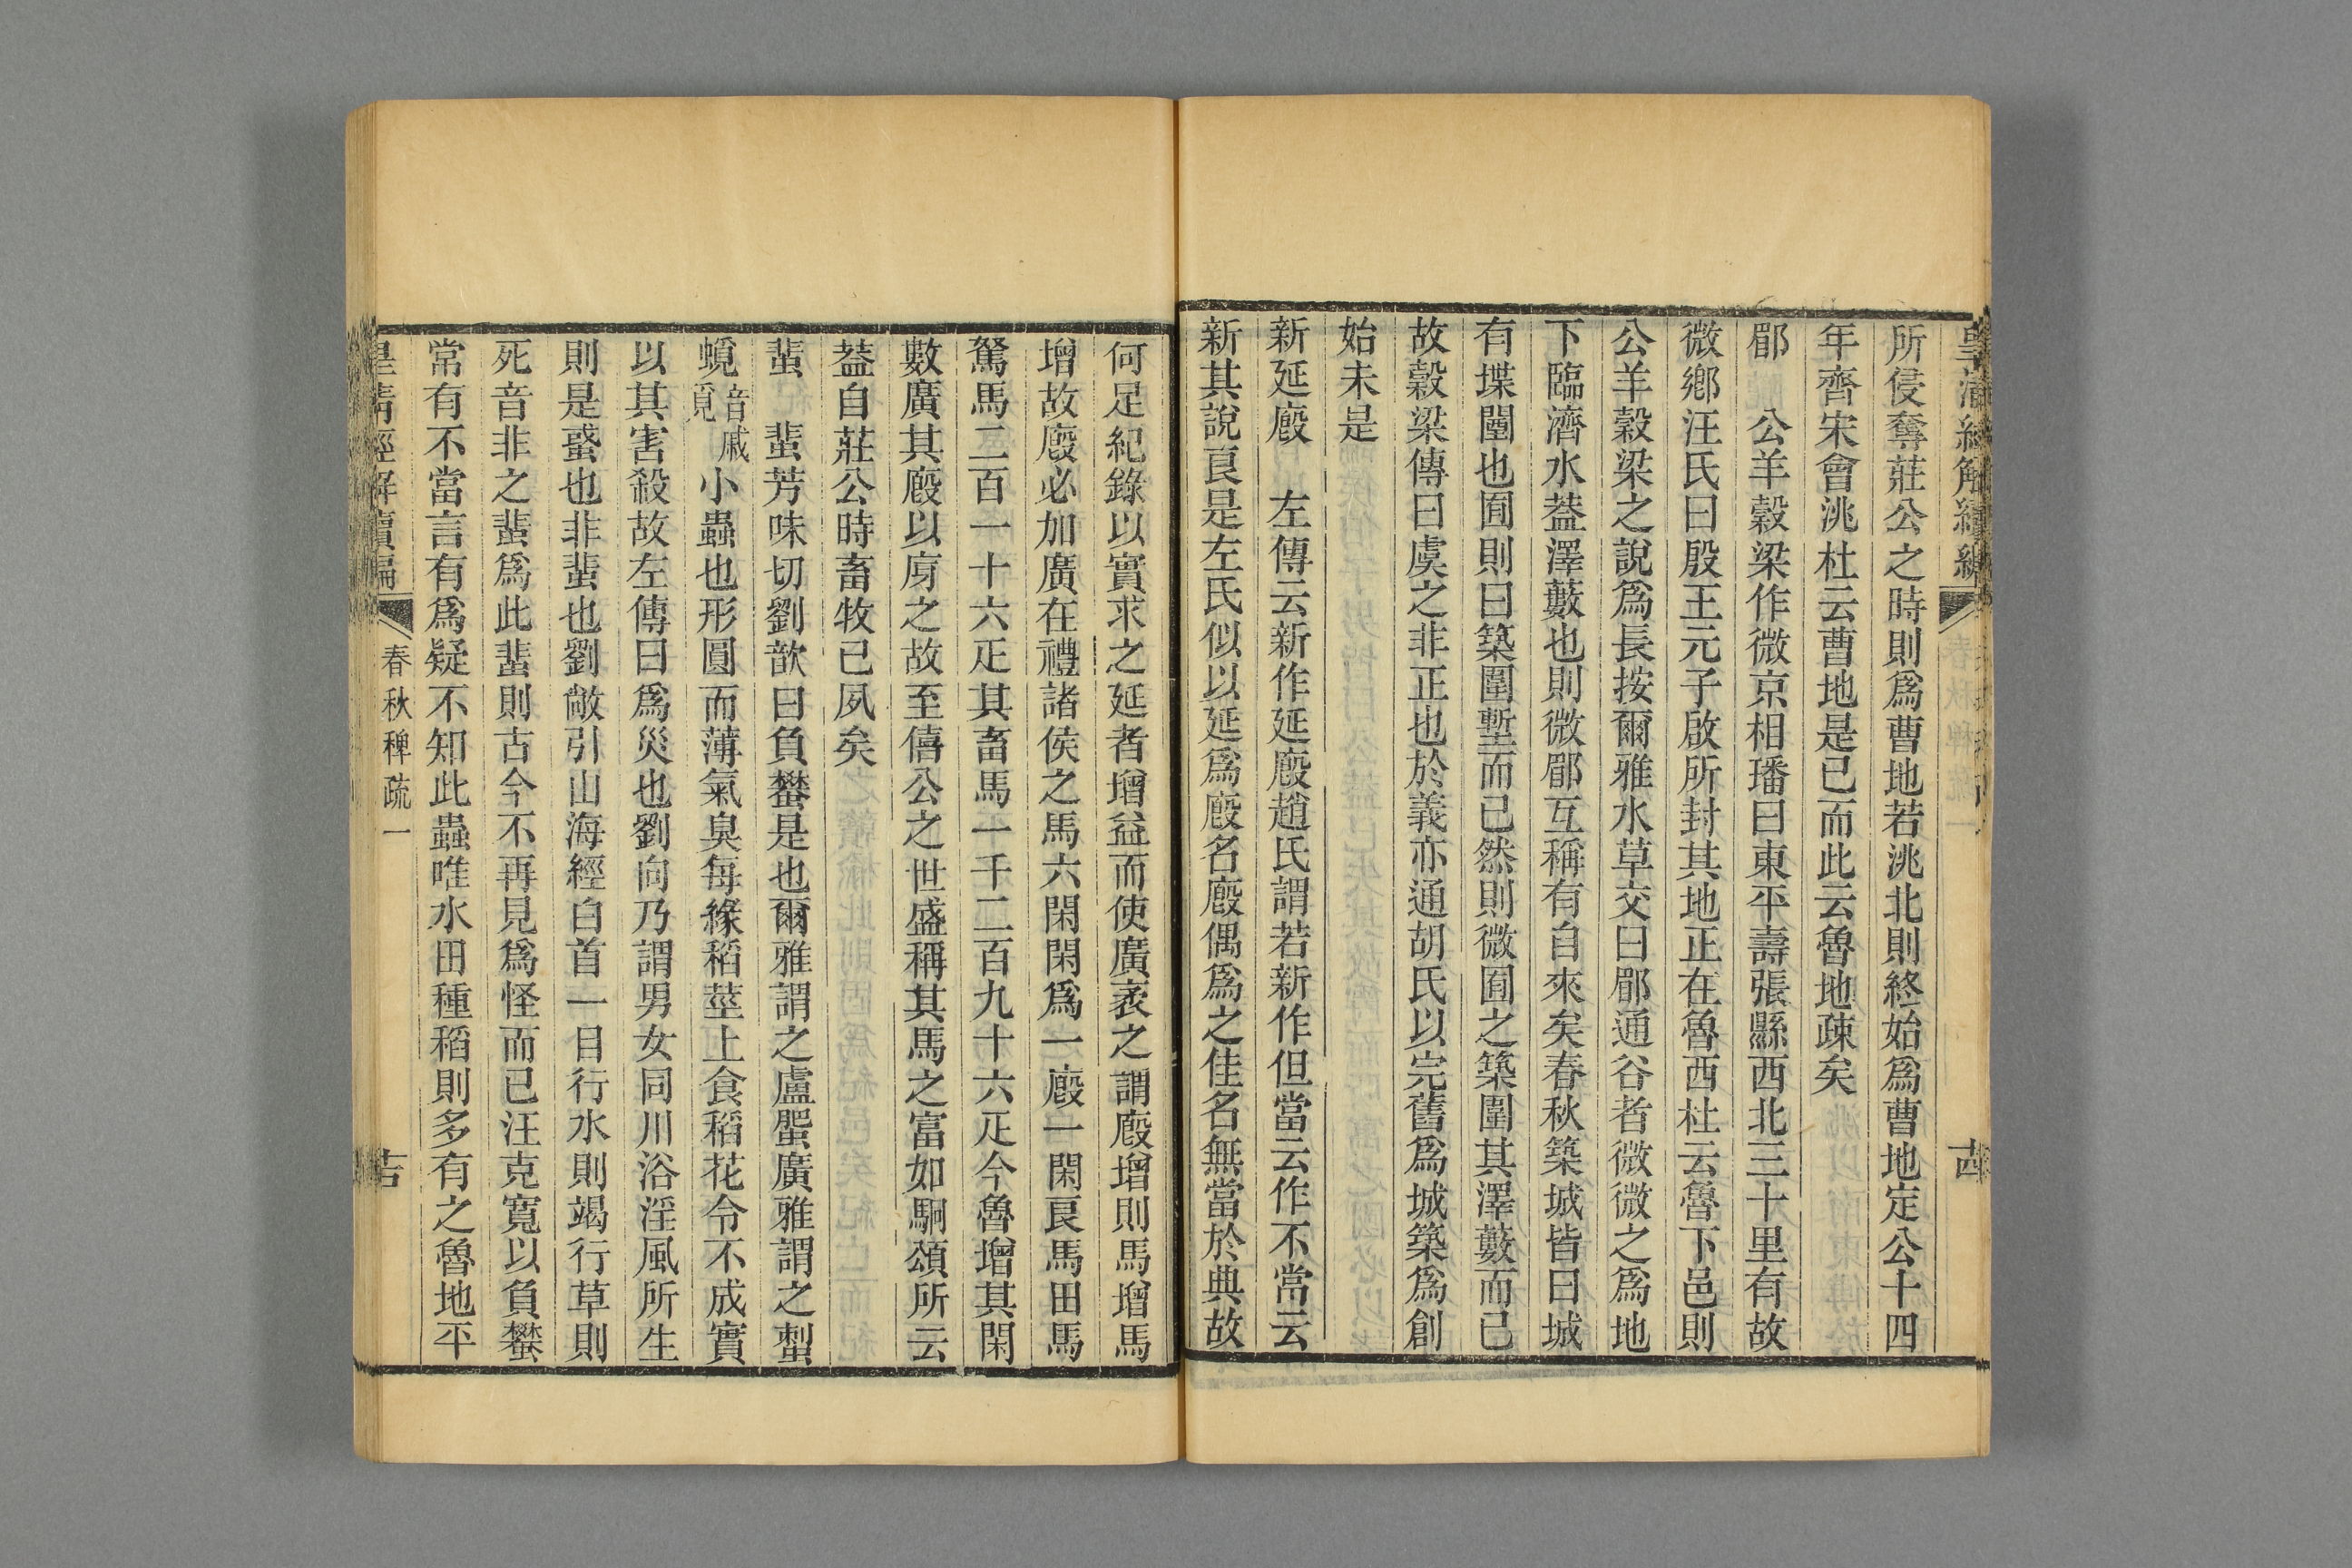 皇清經解續編
所侵奪莊公之時則爲曹地若洮北則終始爲曹地定公十四
年齊宋會洮杜云曹地是已而此云魯地疎矣
郿　公羊穀梁作微京相璠曰東平壽張縣西北三十里有故
微鄉汪氏曰殷王元子啟所封其地正在魯西杜云魯下邑則
公羊穀梁之說爲長按爾雅水草交曰郿通谷者微微之爲地
下臨濟水葢澤藪也則微郿互稱有自來矣春秋築城皆曰城
有堞闉也囿則曰築圍塹而已然則微囿之築圍其澤藪而已
故穀梁傳曰虞之非正也於義亦通胡氏以完舊爲城築爲創
始未是
新延廏　左傳云新作延廏趙氏謂若新作但當云作不當云
新其說良是左氏似以延爲廏名廏偶爲之佳名無當於典故
何足紀錄以實求之延者增益而使廣袤之謂廏增則馬增馬
增故廏必加廣在禮諸侯之馬六閑閑爲一廏一閑良馬田馬
駑馬二百一十六疋其畜馬一千二百九十六疋今魯增其閑
數廣其廏以庌之故至僖公之世盛稱其馬之富如駉頌所云
葢自莊公時畜牧已夙矣
蜚　蜚芳味切劉歆曰負蠜是也爾雅謂之盧蜰廣雅謂之蜤
蜆音戚覓小蟲也形圓而薄氣臭每緣稻莖上食稻花令不成實
以其害殺故左傳曰爲災也劉向乃謂男女同川浴淫風所生
則是蜮也非蜚也劉敞引山海經白首一目行水則竭行草則
死音非之蜚爲此蜚則古今不再見爲怪而已汪克寬以負蠜
常有不當言有爲疑不知此蟲唯水田種稻則多有之魯地平
皇清經解續編
春秋稗疏一